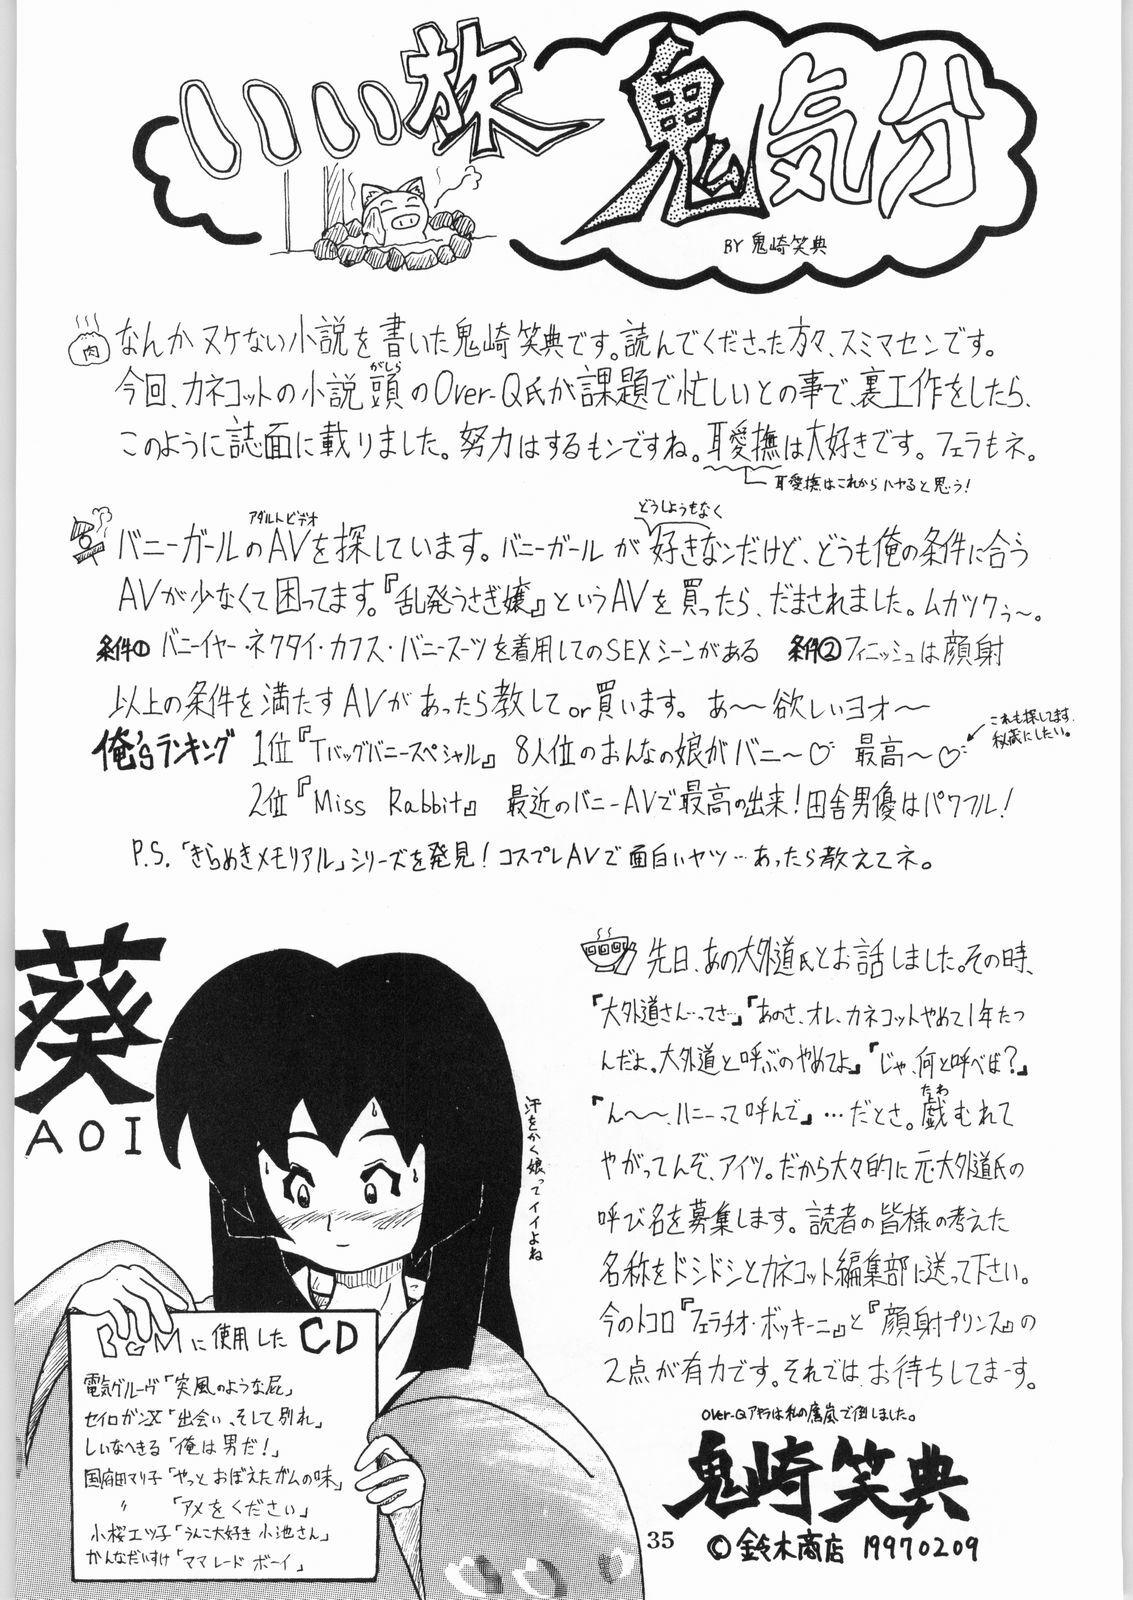 いい旅
鬼気分
BY 鬼崎笑典
肉
なんかヌケない小説を書いた鬼崎笑典です。読んでくださった方々、スミマセンです。
今回、カネコットの小説頭のOver-Q氏が課題で忙しいとの事で、裏工作をしたら、
がしら
このように誌面に載りました。努力はするもンですね。耳愛撫は大好きです。フェラもネ。
耳愛撫はこれからハヤると思う!
アダルトビデオ
どうしようもなく
バニーガールのAVを探しています。バニーガールが好きなンだけど、どうも俺の条件に合う
AVが少なくて困ってます。『乱発うさぎ嬢』というAVを買ったら、だまされました。ムカツクぅ〜。
条件① バニイヤー・ネクタイ・カフス・バニースーツを着用してのSEXシーンがある 条件② フィニッシュは顔射
以上の条件を満たすAVがあったら教して or 買います。あ〜〜欲しいヨオ〜
俺'sランキング 1位『Tバックバニースペシャル』 8人位のおんなの娘がバニ〜♡ 最高〜♡
これも探してます。
秘蔵にしたい。
2位『Miss Rabbit』 最近のバニーAVで最高の出来!田舎男優はパワフル!
P.S.「きらめきメモリアル」シリーズを発見!コスプレAVで面白いヤツ…あったら教えてネ。
葵
AOI
汗をかく娘ってイイよね
に使用したCD
電気グルーヴ「突風のような屁」
セイロガンℤ「出会い、そして別れ」
しいなへきる「俺は男だ!」
国府田マリ子「やっとおぼえたガムの味」
〃 「アメをください」
小桜エツ子「うんこ大好き小池さん」
かんなだいすけ「ママレードボーイ」
先日、あの大外道氏とお話しました。その時、
『大外道さん…ってさ…』『あのさ、オレ、カネコットやめて1年たつ
んだよ。大外道と呼ぶのやめてよ』『じゃ、何と呼べば?』
『ん〜〜、ハニーって呼んで』…だとさ。戯むれて
たわ
やがってんぞ、アイツ。だから大々的に元・大外道氏の
呼び名を募集します。読者の皆様の考えた
名称をドシドシとカネコット編集部に送って下さい。
今のトコロ『フェラチオ・ボッキーニ』と『顔射プリンス』の
2点が有力です。それでは、お待ちしてまーす。
鬼崎笑典
©鈴木商店 19970209
35